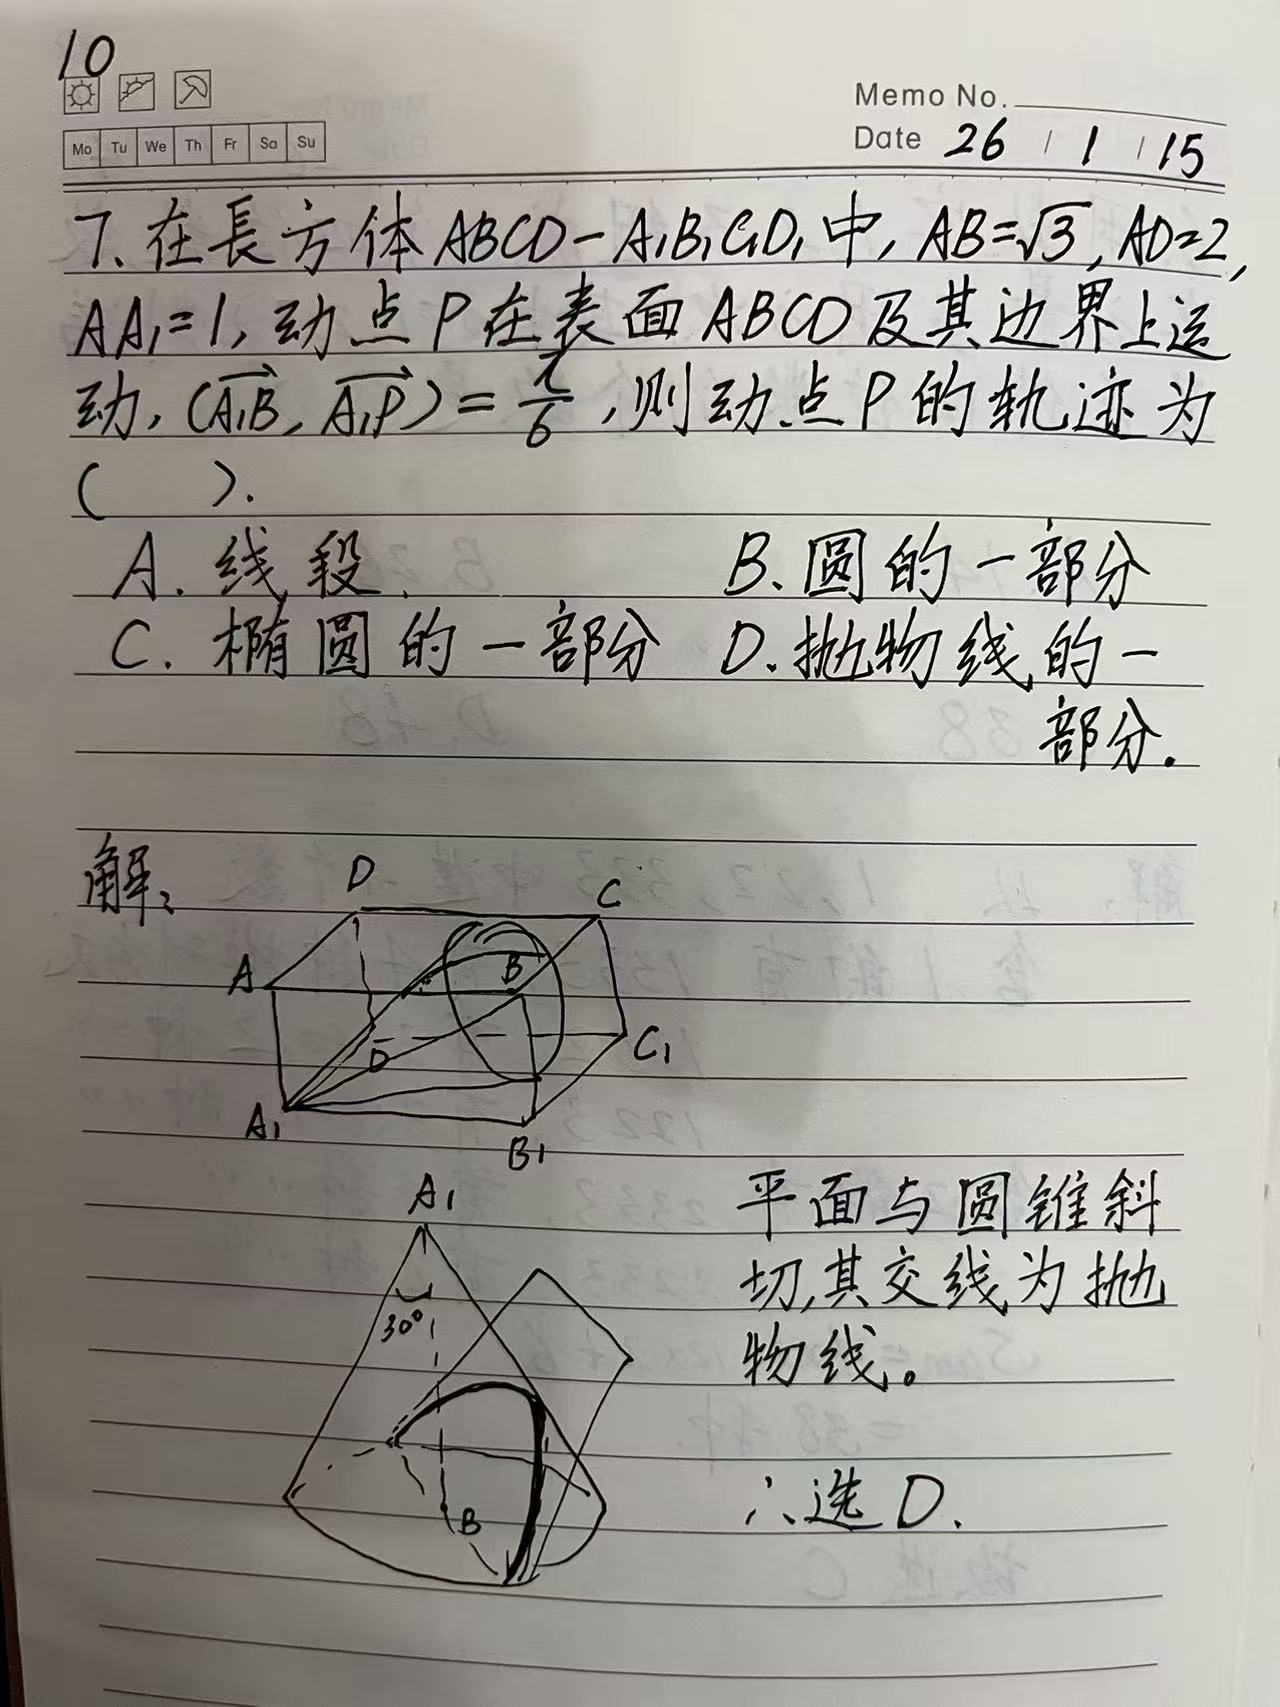 10
Mo Tu We Th Fr Sa Su
Memo No.
Date 26 / 1 / 15
7、在長方体ABCD-A₁B₁C₁D₁中, AB=√3, AD=2,
AA₁=1, 动点P在表面ABCD及其边界上运
动, (A₁B, A₁P) = π/6, 则动点P的轨迹为
( ).
A. 线段. B、圆的一部分
C. 椭圆的一部分 D、抛物线的一
部分.
解:
D C
A B
D C₁
A₁ B₁
A₁
30°
B
平面与圆锥斜
切,其交线为抛
物线。
∴选D.